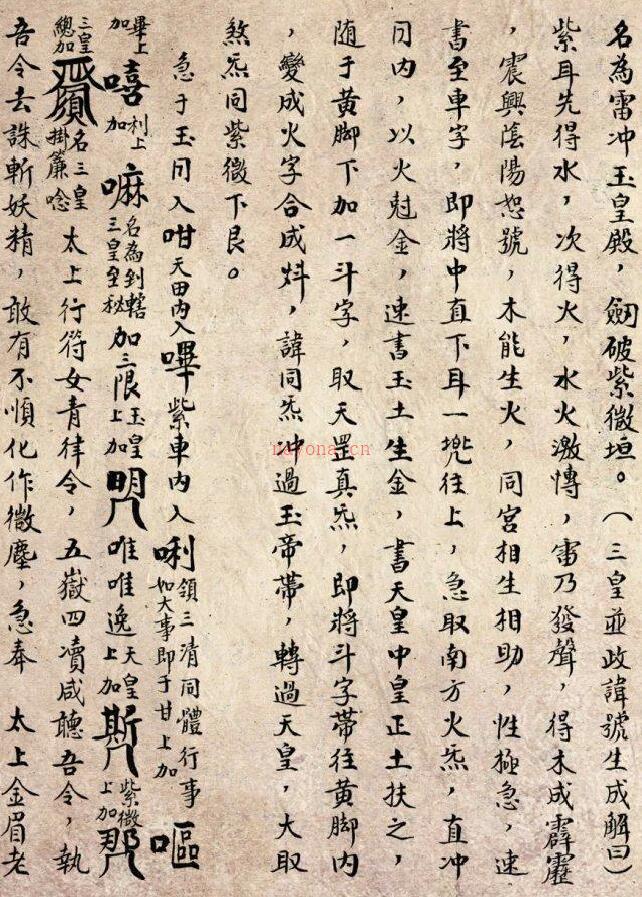 名為雷冲玉皇殿，劒破紫微垣。（三皇並政諱號生成解曰）
紫耳先得水，次得火，水火激慱，雷乃發聲，得木成霹靂
，震興陰陽恕號，木能生火，同宮相生相助，性極急，速
書至車字，即將中直下耳一兠往上，急取南方火炁，直冲
囙内，以火尅金，速書玉土生金，書天皇中皇正土扶之，
随于黄脚下加一斗字，取天罡真炁，即將斗字帶往黄脚内
，變成火字合成炓，諱同炁冲過玉帝帶，轉過天皇，大取
煞炁同紫微下艮。
急于玉囙入咁天田内入嗶紫車内入唎領三清同體行事
如大事即于甘上加嘔
畢上加嘻利上加嘛名為到轄三皇至秘加三限玉皇上加
唯唯逸天皇上加
紫微上加
三皇總加
名三皇掛簾唸太上行符女青律令，五嶽四凟咸聽吾令，執
吾令去誅斬妖精，敢有不順化作微塵，急奉　太上金眉老
nayona.cn